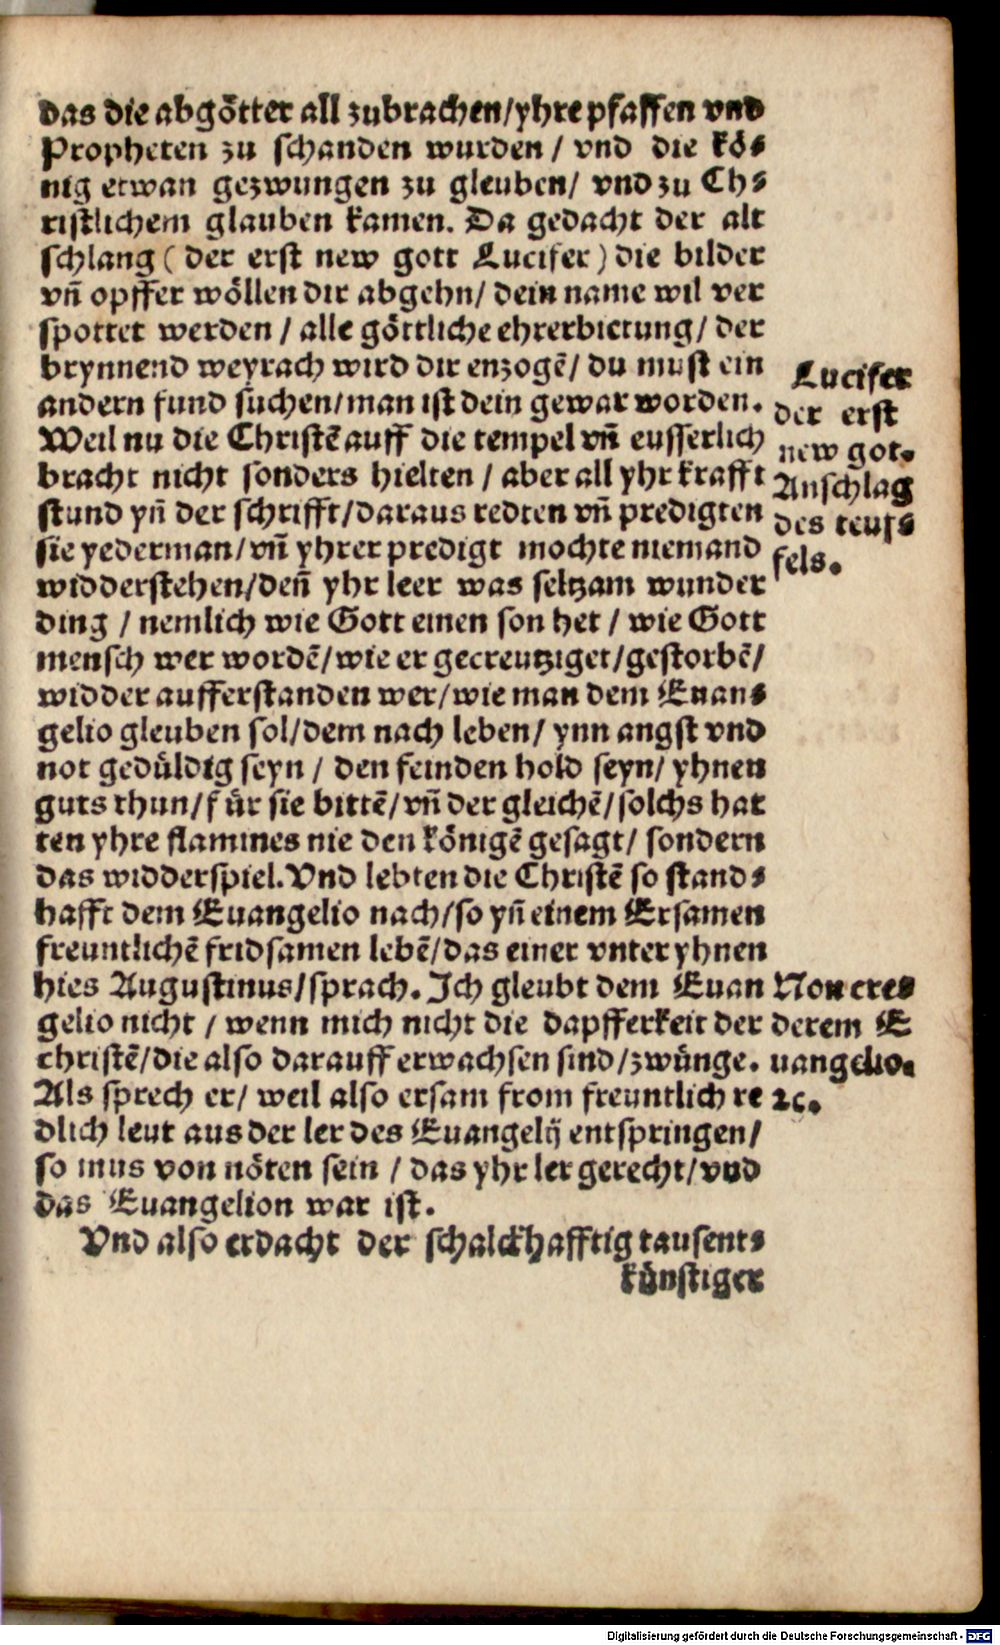 das die abgötter all zubrachen/yhre pfaffen vnd
Propheten zu schanden wurden / vnd die kö⸗
nig etwan gezwungen zu gleuben/ vnd zu Ch⸗
ristlichem glauben kamen. Da gedacht der alt
schlang ( der erst new gott Lucifer ) die bilder
vñ opffer wöllen dir abgehn/ dein name wil ver
spottet werden / alle göttliche ehrerbietung/ der
brynnend weyrach wird dir enzogẽ/ du must ein
andern fund sůchen/man ist dein gewar worden.
Weil nu die Christẽ auff die tempel vñ eusserlich
bracht nicht sonders hielten / aber all yhr krafft
stund yñ der schrifft/daraus redten vñ predigten
sie yederman/vñ yhrer predigt mochte niemand
widderstehen/deñ yhr leer was seltzam wunder
ding / nemlich wie Gott einen son het / wie Gott
mensch wer wordẽ/wie er gecreutziget/gestorbẽ/
widder aufferstanden wer/wie man dem Euan⸗
gelio gleuben sol/dem nach leben/ ynn angst vnd
not gedüldig seyn / den feinden hold seyn/ yhnen
guts thun/für sie bittẽ/vñ der gleichẽ/solchs hat
ten yhre flamines nie den königẽ gesagt/ sondern
das widderspiel. Vnd lebten die Christẽ so stand⸗
hafft dem Euangelio nach/so yñ einem Ersamen
freuntlichẽ fridsamen lebẽ/das einer vnter yhnen
hies Augustinus/sprach. Ich gleubt dem Euan
gelio nicht / wenn mich nicht die dapfferkeit der
christẽ/die also darauff erwachsen sind/zwünge.
Als sprech er/ weil also ersam from freuntlich re
dlich leut aus der ler des Euangelij entspringen/
so mus von nöten sein / das yhr ler gerecht/vnd
das Euangelion war ist.
Vnd also erdacht der schalckhafftig tausent⸗
künstiger
Lucifer
der erst
new got.
Anschlag
des teuf⸗
fels.
Non cre⸗
derem E
uangelio.
ꝛc.
Digitalisierung gefördert durch die Deutsche Forschungsgemeinschaft - DFG